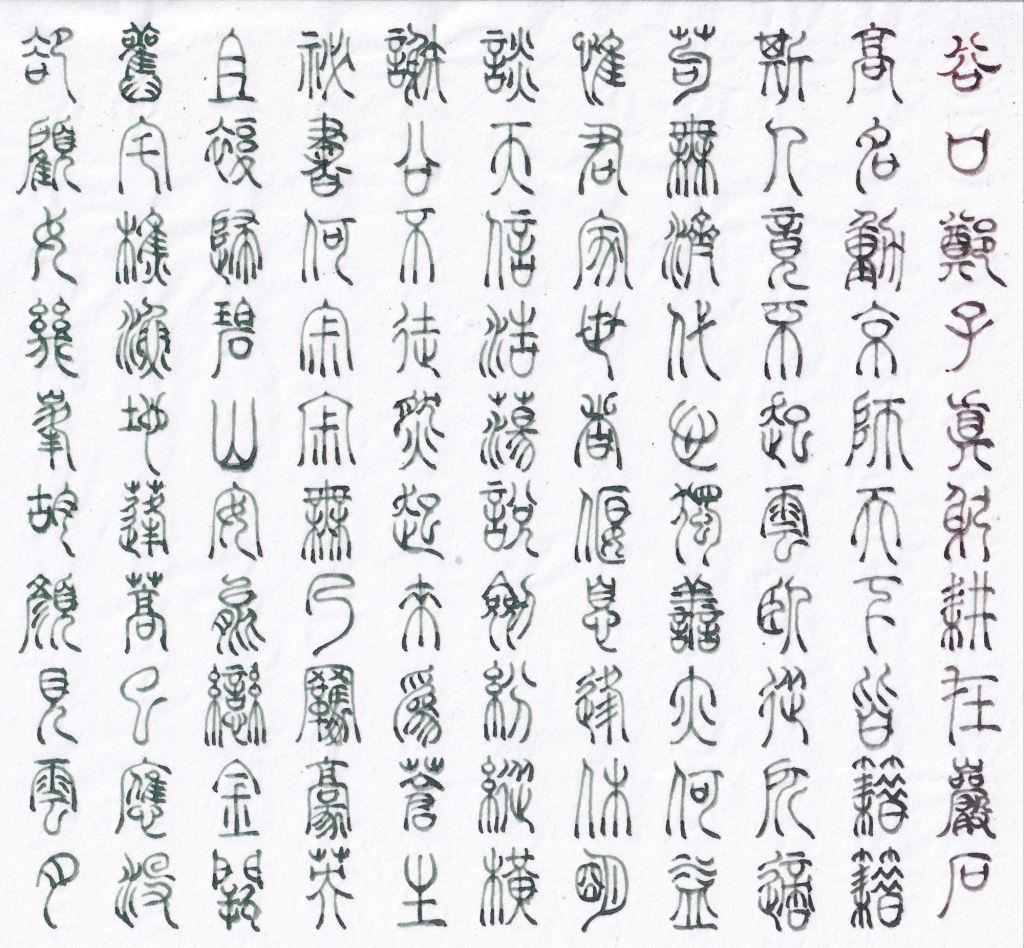 谷口鄭子真躬耕在巖石
高名動京師天下皆籍籍
斯人竟不起雲臥從所適
苟無濟代心獨善亦何益
惟君家世者偃息逢休明
談天信浩蕩說劍紛縱橫
謝公不徒然起來爲蒼生
祕書何寂寂無乃羈豪英
且復歸碧山安能戀金闕
舊宅樵漁地蓬蒿已應沒
卻顧女几峯胡顏見雲月